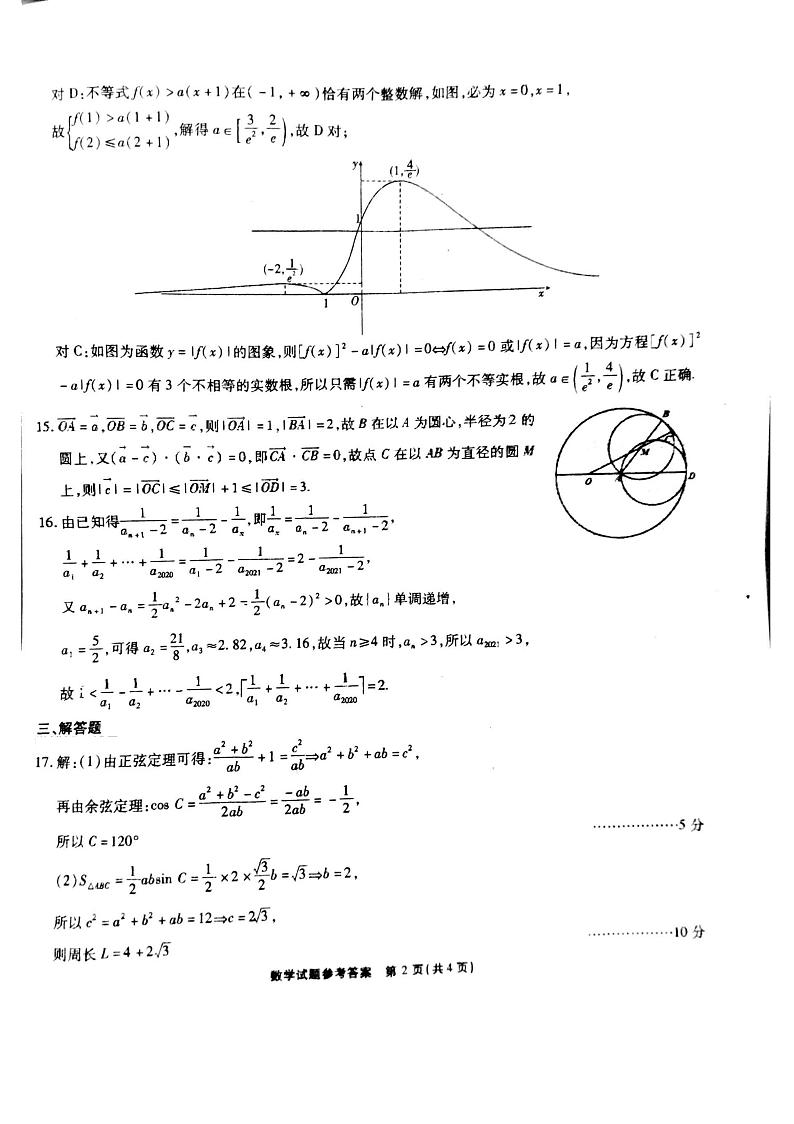 对 D:不等式 f(x) > a(x+1) 在( -1, +∞ )恰有两个整数解,如图,必为 x=0,x=1,
故{f(1) > a(1+1) f(2) ≤ a(2+1) ,解得 a∈[3/e², 2/e),故 D 对;
y
(1, 4/e)
1
(-2, 1/e²)
1 O x
对 C:如图为函数 y=|f(x)|的图象,则[f(x)]²-a|f(x)|=0⇔f(x)=0 或|f(x)|=a,因为方程[f(x)]²
-a|f(x)|=0 有 3 个不相等的实数根,所以只需|f(x)|=a 有两个不等实根,故 a∈(1/e², 4/e),故 C 正确.
15. OA=a,OB=b,OC=c,则|OA|=1,|BA|=2,故 B 在以 A 为圆心,半径为 2 的
圆上,又(a-c)·(b·c)=0,即CA·CB=0,故点 C 在以 AB 为直径的圆 M
上,则|c|=|OC|≤|OM|+1≤|OD|=3.
B
C
M
O A D
16. 由已知得 1/(aₙ₊₁-2) = 1/(aₙ-2) - 1/aₙ,即 1/aₙ = 1/(aₙ-2) - 1/(aₙ₊₁-2),
1/a₁ + 1/a₂ + ⋯ + 1/a₂₀₂₀ = 1/(a₁-2) - 1/(a₂₀₂₁-2) = 2 - 1/(a₂₀₂₁-2),
又 aₙ₊₁-aₙ = 1/2 aₙ²-2aₙ+2 = 1/2 (aₙ-2)²>0,故{aₙ}单调递增,
a₁ = 5/2,可得 a₂ = 21/8,a₃≈2.82,a₄≈3.16,故当 n≥4 时,aₙ>3,所以 a₂₀₂₁>3,
故 1 < 1/a₁ - 1/a₂ + ⋯ - 1/a₂₀₂₀ < 2,⌈1/a₁ + 1/a₂ + ⋯ + 1/a₂₀₂₀⌉=2.
三、解答题
17. 解:(1)由正弦定理可得: (a²+b²)/ab + 1 = c²/ab ⇒ a²+b²+ab=c²,
再由余弦定理:cos C = (a²+b²-c²)/2ab = -ab/2ab = -1/2,
所以 C=120° ………………5 分
(2)S△ABC = 1/2 absin C = 1/2 ×2× √3/2 b = √3⇒b=2,
所以 c²=a²+b²+ab=12⇒c=2√3,
则周长 L=4+2√3 ………………10 分
数学试题参考答案 第 2 页(共 4 页)